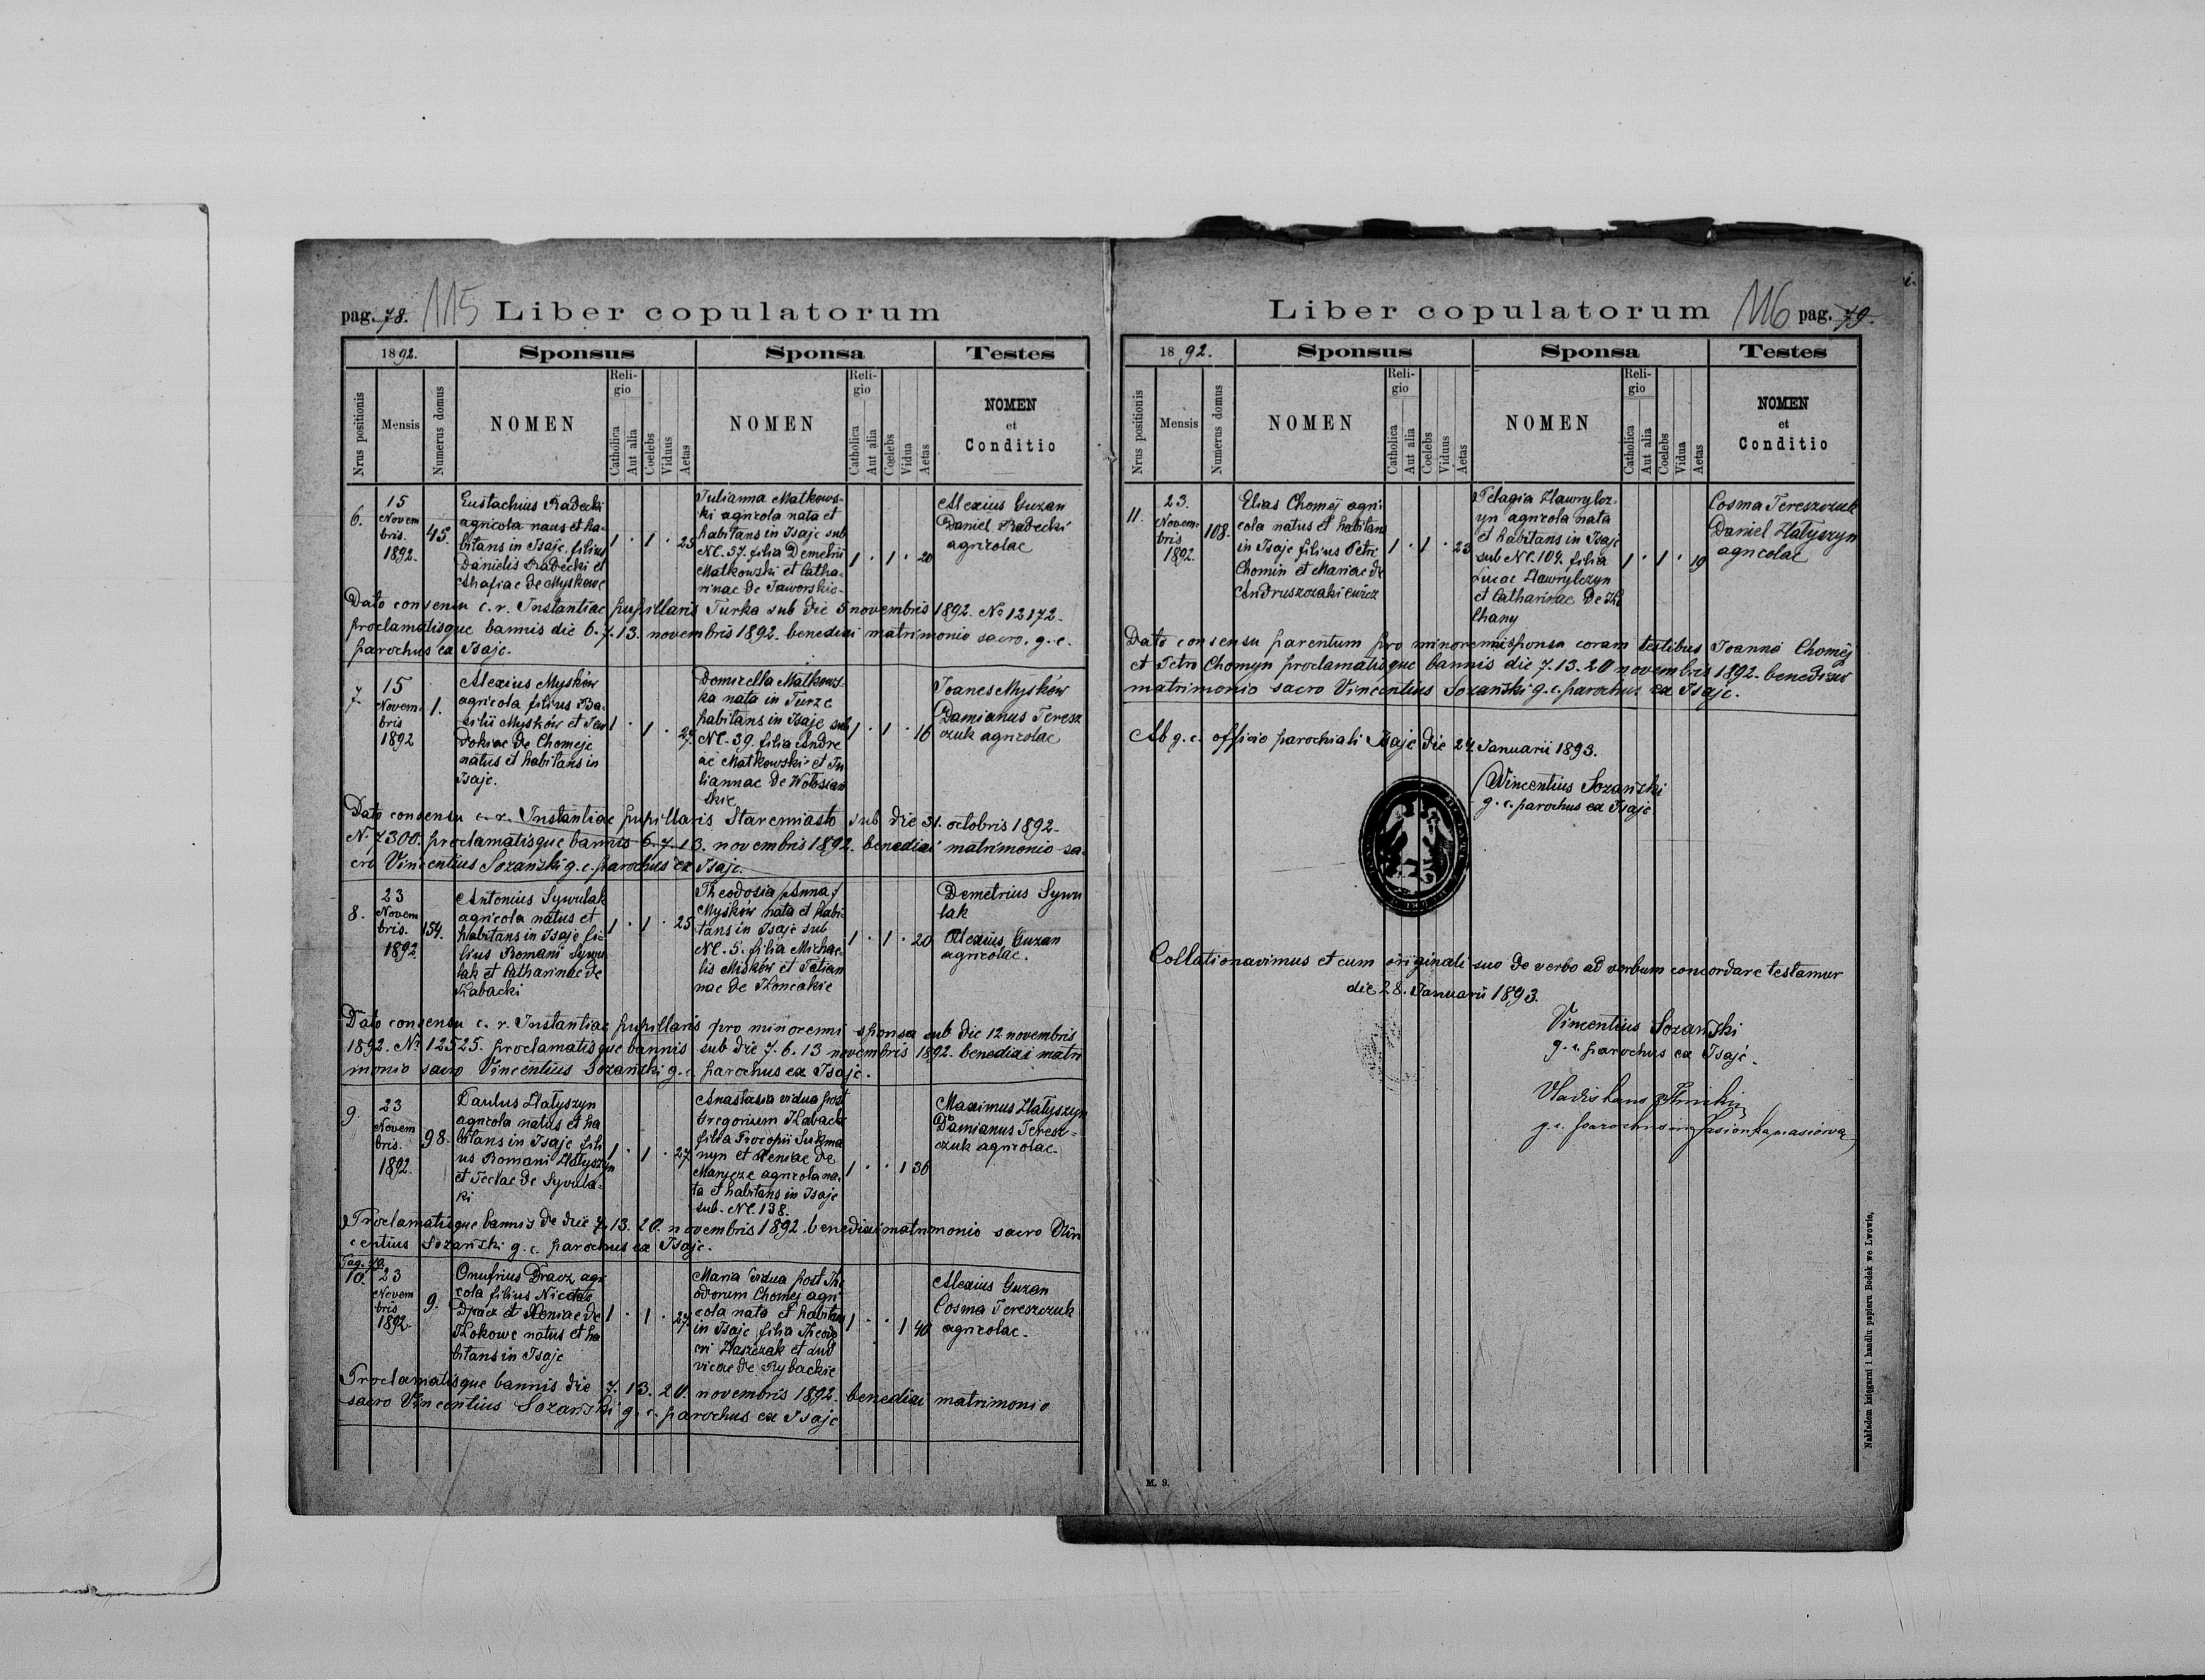 pag. 78. 115 Liber copulatorum
1892. Sponsus Sponsa Testes
Nrus positionis Mensis Numerus domus NOMEN Religio Catholica Aut alia Coelebs Viduus Aetas NOMEN Religio Catholica Aut alia Coelebs Vidua Aetas NOMEN et Conditio
6.
15
Novem
bris.
1892.
45.
Eustachius Radecki
agricola naus et ha-
bitans in Isaje filius
Danielis Radecki et
Ahafiae de Myskowe
1 . 1 . 25
Julianna Matkows-
ki agricola nata et
habitans in Isaje sub
NC. 57. filia Demetrii
Matkowski et Catha-
rinae de Jaworskie-
1 . 1 . 20
Alexius Guzan
Daniel Radecki
agricolae
Dato consensu c. r. Instantiae pupillaris Turka sub die 5 novembris 1892. No 12172.
proclamatisque bannis die 6. 7. 13. novembris 1892. benedixi matrimonio sacro. g. c.
parochus ex Isaje.
7.
15
Novem-
bris
1892
1.
Alexius Mysków
agricola filius Ba-
silii Mysków et Jew
dokiae de Chomeje
natus et habitans in
Isaje.
1 . 1 . 27.
Domicella Matkows-
ka nata in Turze
habitans in Isaje sub
NC. 39. filia Andre
ae Matkowski et Ju
liannae de Wołosian
skie
1 . 1 . 16
Joanes Mysków
Damianus Teresz
czuk agricolae
Dato consensu c. r. Instantiae pupillaris Staremiasto sub die 31. octobris 1892.
N. 7300. proclamatisque bannis 6. 7. 13. novembris 1892. benedixi matrimonio sa-
cro Vincentius Sozański g. c. parochus ex Isaje.
8.
23
Novem
bris.
1892
154.
Antonius Sywulak
agricola natus et
habitans in Isaje fi-
lius Romani Sywu
lak et Catharinae de
Kabacki
1 . 1 . 25
Theodosia /Anna/
Myśków nata et habi-
tans in Isaje sub
NC. 5. filia Michae-
lis Misków et Tatian
nae de Koncakie
1 . 1 . 20
Demetrius Sywu
lak
Alexius Guzan
agricolae.
Dato consensu c. r. Instantiae pupillaris pro minorenni sponsa sub die 12 novembris
1892. No 12525. proclamatisque bannis sub die 7. 6. 13 novembris 1892. benedixi matri
monio sacro Vincentius Sozański g. c. parochus ex Isaje.
9.
23
Novem
bris.
1892.
98.
Paulus Hatyszyn
agricola natus et ha
bitans in Isaje fili
us Romani Hatyszyn
et Teclae de Sywula-
ki
1 . 1 . 27.
Anastasia vidua post
Gregorium Kabacki
filia Procopii Sukma
nyn et Xeniae de
Marycze agricola na-
ta et habitans in Isaje
sub. NC. 138.
1 . . 1 36
Maximus Hatyszyn
Damianus Teresz-
czuk agricolae.
Proclamatisque bannis de die 7. 13. 20. novembris 1892. benedixi matrimonio sacro Vin
centius Sozański g. c. parochus ex Isaje.
Pag. 79.
10.
23
Novem
bris
1892
9.
Onufrius Dracz agri
cola filius Nicolae
Dracz et Xeniae de
Kokowe natus et ha
bitans in Isaje
1 . 1 . 27.
Maria vidua post The
odorum Chomej agri
cola nata et habitans
in Isaje filia Theodo
ri Haszczak et Lud
vicae de Rybackie
1 . . 1 40
Alexius Guzan
Cosma Tereszczuk
agricolae.
Proclamatisque bannis die 7. 13. 20. novembris 1892. benedixi matrimonio
sacro Vincentius Sozański g. c. parochus ex Isaje
Liber copulatorum 116 pag. 79.
1892. Sponsus Sponsa Testes
Nrus positionis Mensis Numerus domus NOMEN Religio Catholica Aut alia Coelebs Viduus Aetas NOMEN Religio Catholica Aut alia Coelebs Vidua Aetas NOMEN et Conditio
11.
23.
Novem-
bris
1892.
108.
Elias Chomej agri-
cola natus et habitans
in Isaje filius Petri
Chomin et Mariae de
Andruszczakiewicz
1 . 1 . 23
Pelagia Hawrylcz-
yn agricola nata
et habitans in Isaje
sub NC. 104. filia
Lucae Hawrylczyn
et Catharinae de
1 . 1 . 19
Cosma Tereszczuk
Daniel Hatyszyn
agricolae
Dato consensu parentum pro minorenni sponsa coram testibus Joanno Chomej
et Petro Chomyn proclamatisque bannis die 7. 13. 20 novembris 1892. benedixi
matrimonio sacro Vincentius Sozański g. c. parochus ex Isaje.
Ab g. c. officio parochiali Isaje die 24. Januarii 1893.
Vincentius Sozański
g. c. parochus ex Isaje
Collationavimus et cum originali suo de verbo ad verbum concordare testamur
die 28. Januarii 1893.
Vincentius Sozański
g. c. parochus ex Isaje.
g. c. parochus in
M. 9.
Nakładem księgarni i handlu papieru Bodek we Lwowie,